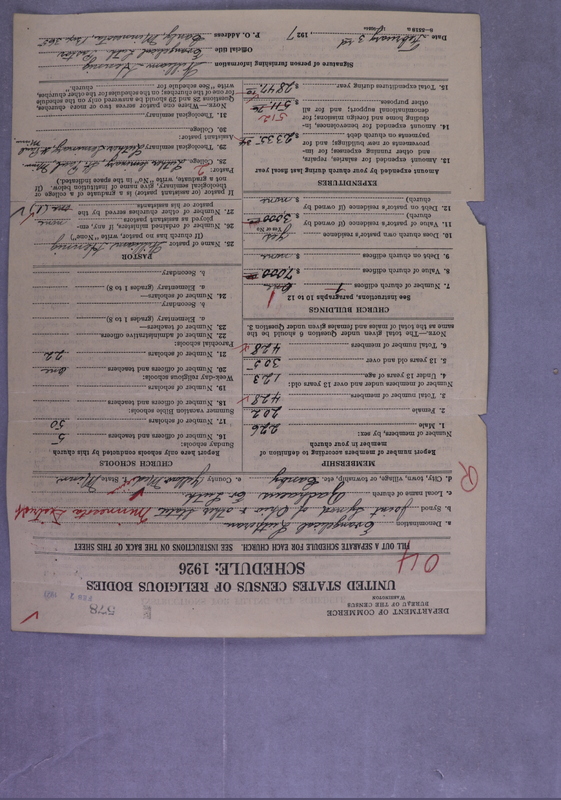 DEPARTMENT OF COMMERCE
BUREAU OF THE CENSUS
WASHINGTON
578
FEB 2 1927
UNITED STATES CENSUS OF RELIGIOUS BODIES
SCHEDULE: 1926
FILL OUT A SEPARATE SCHEDULE FOR EACH CHURCH. SEE INSTRUCTIONS ON THE BACK OF THIS SHEET
a. Denomination Evangelical Lutheran
b. Synod Joint Synod of Ohio & other States Minnesota District
c. Local name of church Zacharias Ev Luth
d. City, town, village, or township, etc. Canby e. County Yellow Medicine State Minn.
MEMBERSHIP
Report number of members according to definition of member in your church
Number of members, by sex:
1. Male 226
2. Female 202
3. Total number of members 428
Number of members under and over 13 years old:
4. Under 13 years of age 123
5. 13 years old and over 305
6. Total number of members 428
NOTE.—The total given under Question 6 should be the same as the total of males and females given under Question 3.
CHURCH BUILDINGS
See instructions, paragraphs 10 to 12
7. Number of church edifices one 1
8. Value of church edifices $ 7,000
9. Debt on church edifices $ none
10. Does own church pastor's residence yes
(Yes or No)
11. Value of pastor's residence (if owned by church) $ 3,000
12. Debt on pastor's residence (if owned by church) $ none
EXPENDITURES
Amount expended by your church during last fiscal year
13. Amount expended for salaries, repairs, and other running expenses; for improvements or new building; and for payments on church debt $ 2335
14. Amount expended for benevolences, including home and foreign missions; for denominational support; and for all other purposes $ 512
15. Total expenditures during year $ 2847
CHURCH SCHOOLS
Report here only schools conducted by this church
Sunday schools:
16. Number of officers and teachers 5
17. Number of scholars 50
Summer vacation Bible schools:
18. Number of officers and teachers
19. Number of scholars
Week-day religious schools:
20. Number of officers and teachers one
21. Number of scholars 22
Parochial schools:
22. Number of administrative officers
23. Number of teachers—
a. Elementary (grades 1 to 8)
b. Secondary
24. Number of scholars—
a. Elementary (grades 1 to 8)
b. Secondary
PASTOR
25. Name of pastor William Hennig
(If church has no pastor, write "None.")
26. Number of assistant ministers, if any, employed as pastor's assistants none
27. Number of other churches served by the pastor or his assistants one (1)
If pastor (or assistant pastor) is a graduate of a college or theological seminary, give name of institution below. (If not a graduate, write "No" in the space below.)
Pastor:
28. College Luther Seminary St. Paul Minn
29. Theological seminary Luther Seminary St. Paul Minn
Assistant pastor:
30. College
31. Theological seminary
NOTE.—When one pastor serves two or more churches, Questions 28 and 29 should be answered only on the schedule for one of the churches; on the schedule for the other churches, write "See schedule for church."
Signature of person furnishing information William Hennig
Official title Evangelical Luth. Pastor
Date February 3rd, 1927 P. O. Address Canby, Minnesota, Box 365